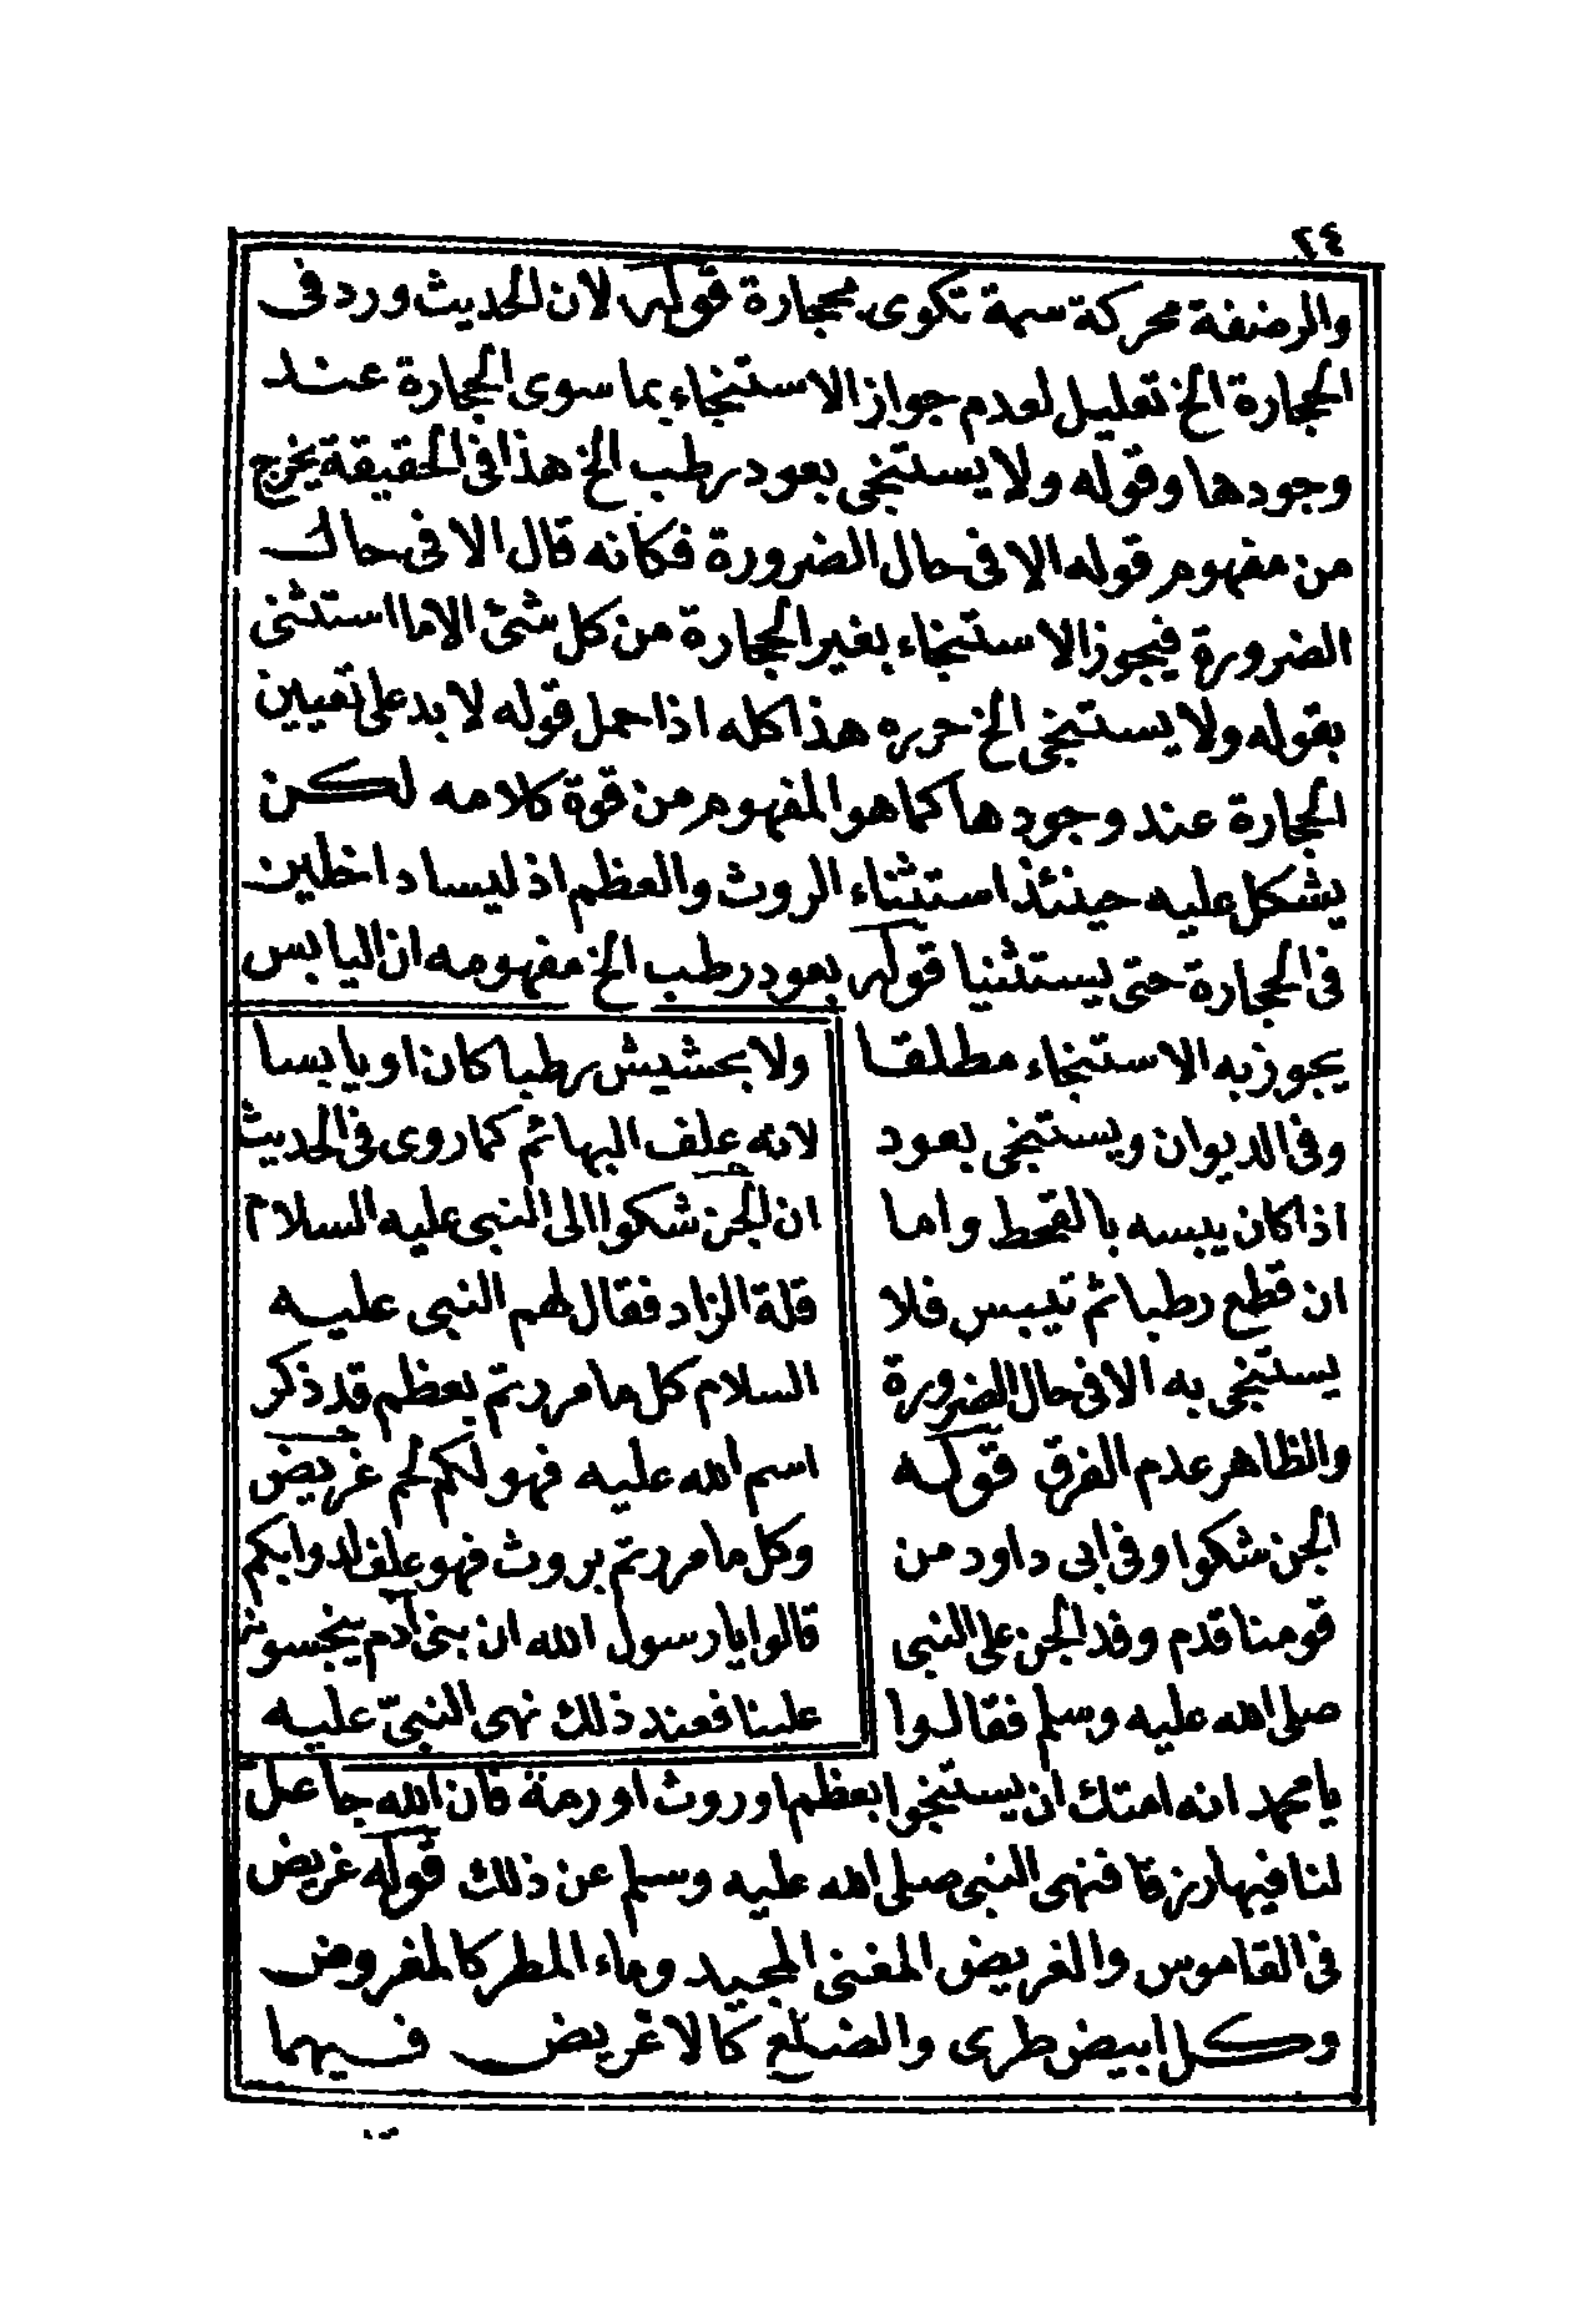 ٢٤
والرضفة محركة سمة تكوى بمحجارة قوله لان الحديث ورد فى
الحجارة الخ تعليل لعدم جواز الاستنجاء بما سوى الحجارة عند
وجودها وقوله ولا يستنجى بعود رطب الخ هذا فى الحقيقة يخرج
من مفهوم قوله الا فى حال الضرورة فكانه قال الا فى حال
الضرورة فيجوز الاستنجاء بغير الحجارة من كل شئ الا ما استثنى
بقوله ولا يستنجى الخ حرره هذا كله اذا حمل قوله لا بد على تعيين
الحجارة عند وجودها كما هو المفهوم من قوة كلامه لكن
يشكل عليه حينئذ استثناء الروث والعظم اذ ليسا داخلين
فى الحجارة حتى يستثنيا قوله بعود رطب الخ مفهومه ان اليابس
يجوز به الاستنجاء مطلقا
وفى الديوان ويستنجى بعود
اذا كان يبسه بالقحط واما
ان قطع رطبا ثم تيبس فلا
يستنجى به الا فى حال الضرورة
والظاهر عدم الفرق قوله
الجن شكوا وفى ابى داود من
قومنا قدم وفد الجن على النبى
صلى الله عليه وسلم فقالوا
يا محمد انه امتك ان يستنجوا بعظم او روث او رمة فان الله جاعل
لنا فيها رزقا فنهى النبى صلى الله عليه وسلم عن ذلك قوله غريض
فى القاموس والغريض المغنى المجيد وماء المطر كالمغروض
وكل ابيض طرى والضلع كالاغريض فيهما
ولا بحشيش رطبا كان او يابسا
لانه علف البهائم كما روى فى الحديث
ان الجن شكوا الى النبى عليه السلام
قلة الزاد فقال لهم النبى عليه
السلام كل ما مررتم بعظم قد ذكر
اسم الله عليه فهو لكم لحم غريض
وكل ما مررتم بروث فهو علف لدوابكم
قالوا يا رسول الله ان بنى آدم ينجسونه
علينا فعند ذلك نهى النبىّ عليه